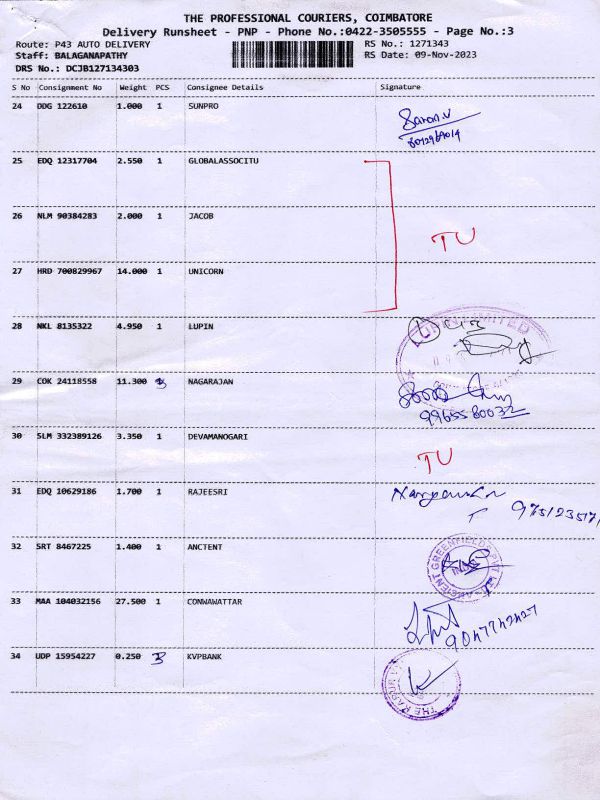 THE PROFESSIONAL COURIERS, COIMBATORE
Delivery Runsheet - PNP - Phone No.:0422-3505555 - Page No.:3
Route: P43 AUTO DELIVERY RS No.: 1271343
Staff: BALAGANAPATHY RS Date: 09-Nov-2023
DRS No.: DCJB127134303
S No Consignment No Weight PCS Consignee Details Signature
24 DDG 122610 1.000 1 SUNPRO
25 EDQ 12317704 2.550 1 GLOBALASSOCITU
26 NLM 90384283 2.000 1 JACOB TU
27 HRD 700829967 14.000 1 UNICORN
28 NKL 8135322 4.950 1 LUPIN
29 COK 24118558 11.300 3 NAGARAJAN
9965580032
30 SLM 332389126 3.350 1 DEVAMANOGARI TU
31 EDQ 10629186 1.700 1 RAJEESRI
32 SRT 8467225 1.400 1 ANCTENT
33 MAA 104032156 27.500 1 CONWAWATTAR
34 UDP 15954227 0.250 3 KVPBANK